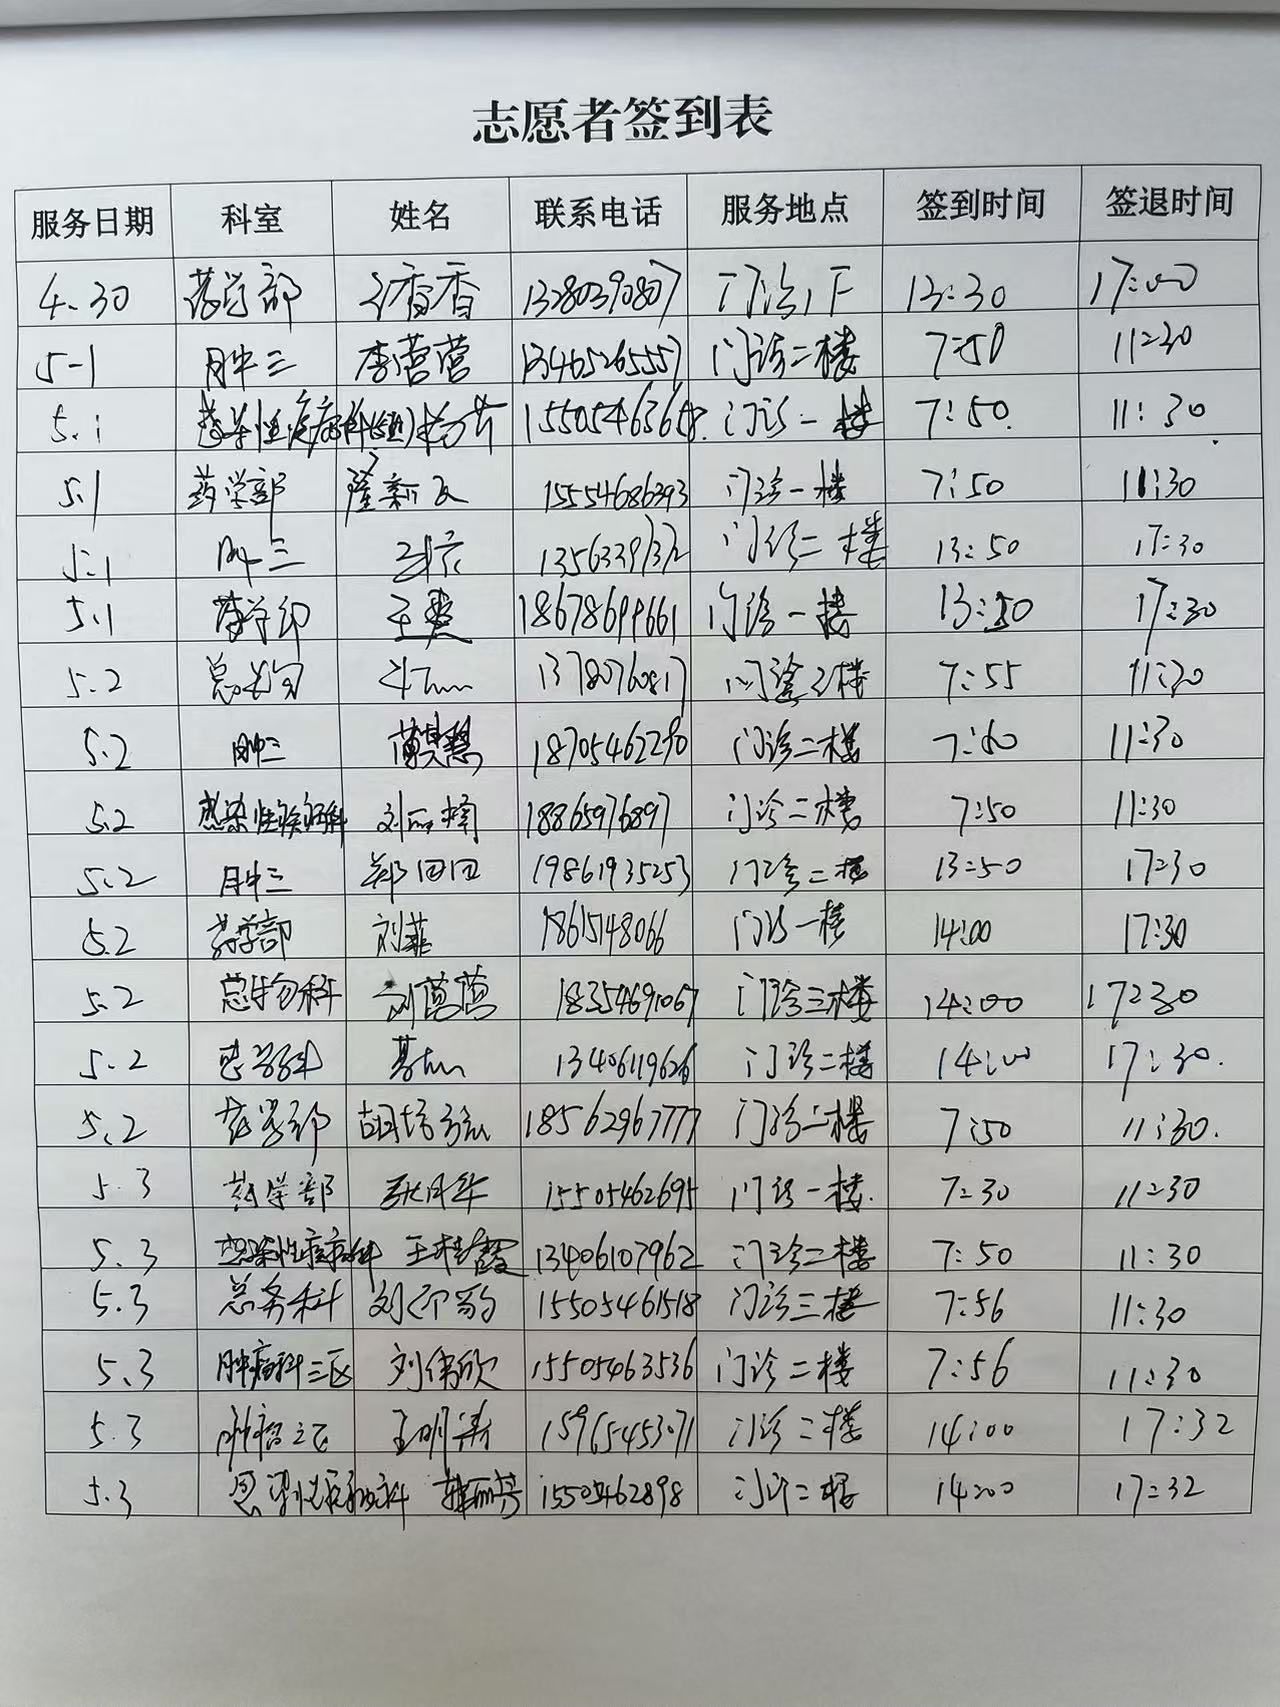 志愿者签到表
服务日期 科室 姓名 联系电话 服务地点 签到时间 签退时间
4.30 药学部 香香 13280390807 门诊1F 13:30 17:00
5-1 肿三 李营营 13465265557 门诊二楼 7:50 11:30
5.1 15505463658 门诊一楼 7:50 11:30
5.1 药学部 隆新 15554686393 门诊一楼 7:50 11:30
5.1 肿三 13563391372 门诊二楼 13:50 17:30
5.1 药学部 王 18678699661 门诊一楼 13:50 17:30
5.2 总务 13780760817 门诊 楼 7:55 11:30
5.2 肿三 慧 18705462290 门诊二楼 11:30
5.2 感染性疾病科 刘丽楠 18865976897 门诊二楼 7:50 11:30
5.2 肿三 郑田田 19861935253 门诊二楼 13:50 17:30
5.2 药学部 刘菲 18615148066 门诊一楼 14:00 17:30
5.2 总务科 刘 18354691067 门诊三楼 14:00 17:30
5.2 13406119626 门诊二楼 14:00 17:30.
5.2 药学部 胡 18562967777 门诊 楼 7:50 11:30.
5.3 药学部 耿月华 15505462695 门诊一楼. 7:30 11:30
5.3 感染性疾病科 王桂霞 13406107962 门诊二楼 7:50 11:30
5.3 总务科 刘 15505461518 门诊三楼 7:56 11:30
5.3 肿瘤科三区 刘伟欣 15505463536 门诊二楼 7:56 11:30
5.3 肿瘤三区 王明 15965453071 门诊二楼 14:00 17:32
5.3 感染性疾病科 韩丽芳 15505462898 门诊二楼 14:00 17:32